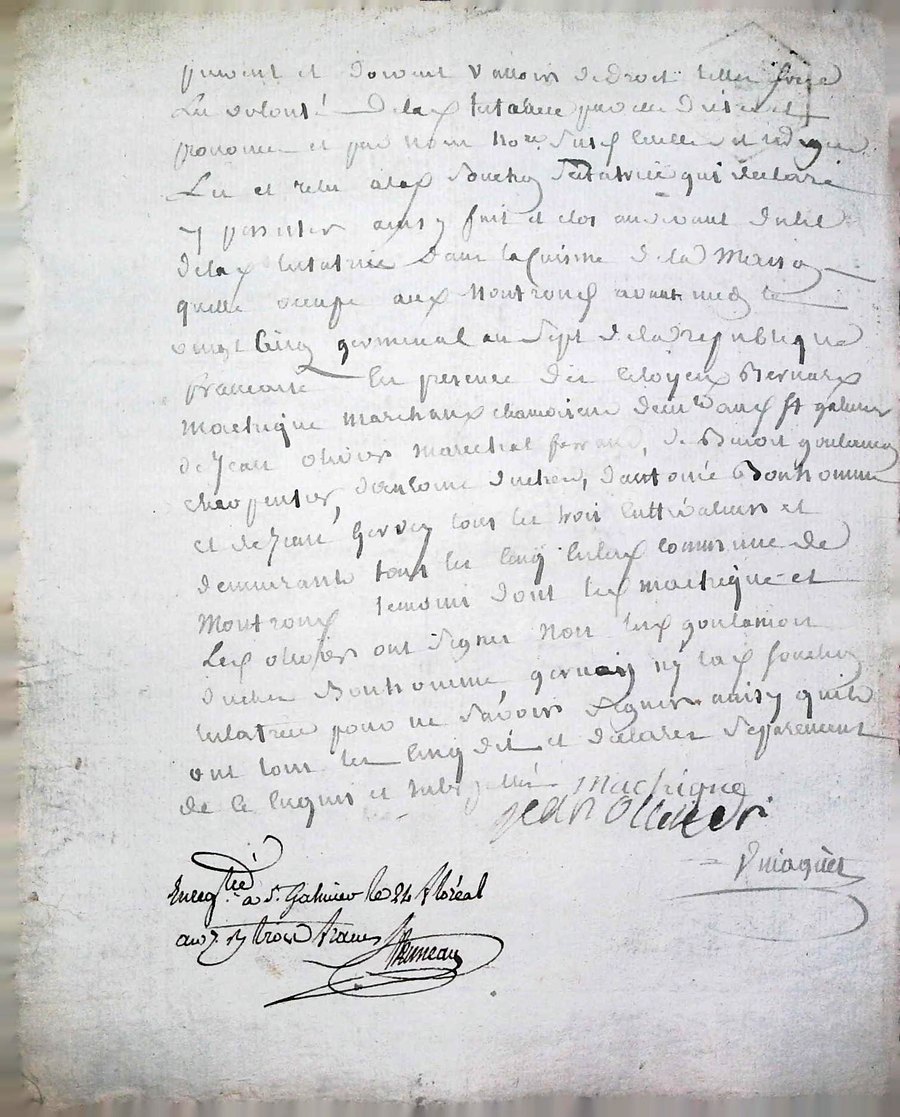 peuvent et doivent valloir de droit telle
la volonté de lad testatrice par elle dicté et
prononcé et par nous no.re
Lu et relu a lad Souchon testatrice qui declaré
y persister ainsy fait et clos audevant du lit
de lad testatrice dans la Cuisine de la Maison
quelle occupe aud Montrond avant midy le
vingt Cinq germinal an Sept de la republique
francoise En presence des Citoyens Bernard
machigue marchand chamoiseur demt aud St galmier
de Jean olivier marechal ferrand, de Benoit goulamon
charpentier, d'antoine ducheu, d'antoine Bonhomme
et de Jean gervay tous les trois Cultivateurs et
demeurants tous les Cinq En lad commune de
Montrond temoins dont led machigue et
Led olivier ont signer non led goulamon
ducheu Bonhomme gervais ny lad Souchon
testatrice pour ne savoir signer ainsy quils
ont tous les Cinq dit et declarer sepparement
de ce Enquis et
Machigue
Jean Ollivier
Enregtré à St Galmier le 24 floréal
an 7. trois francs